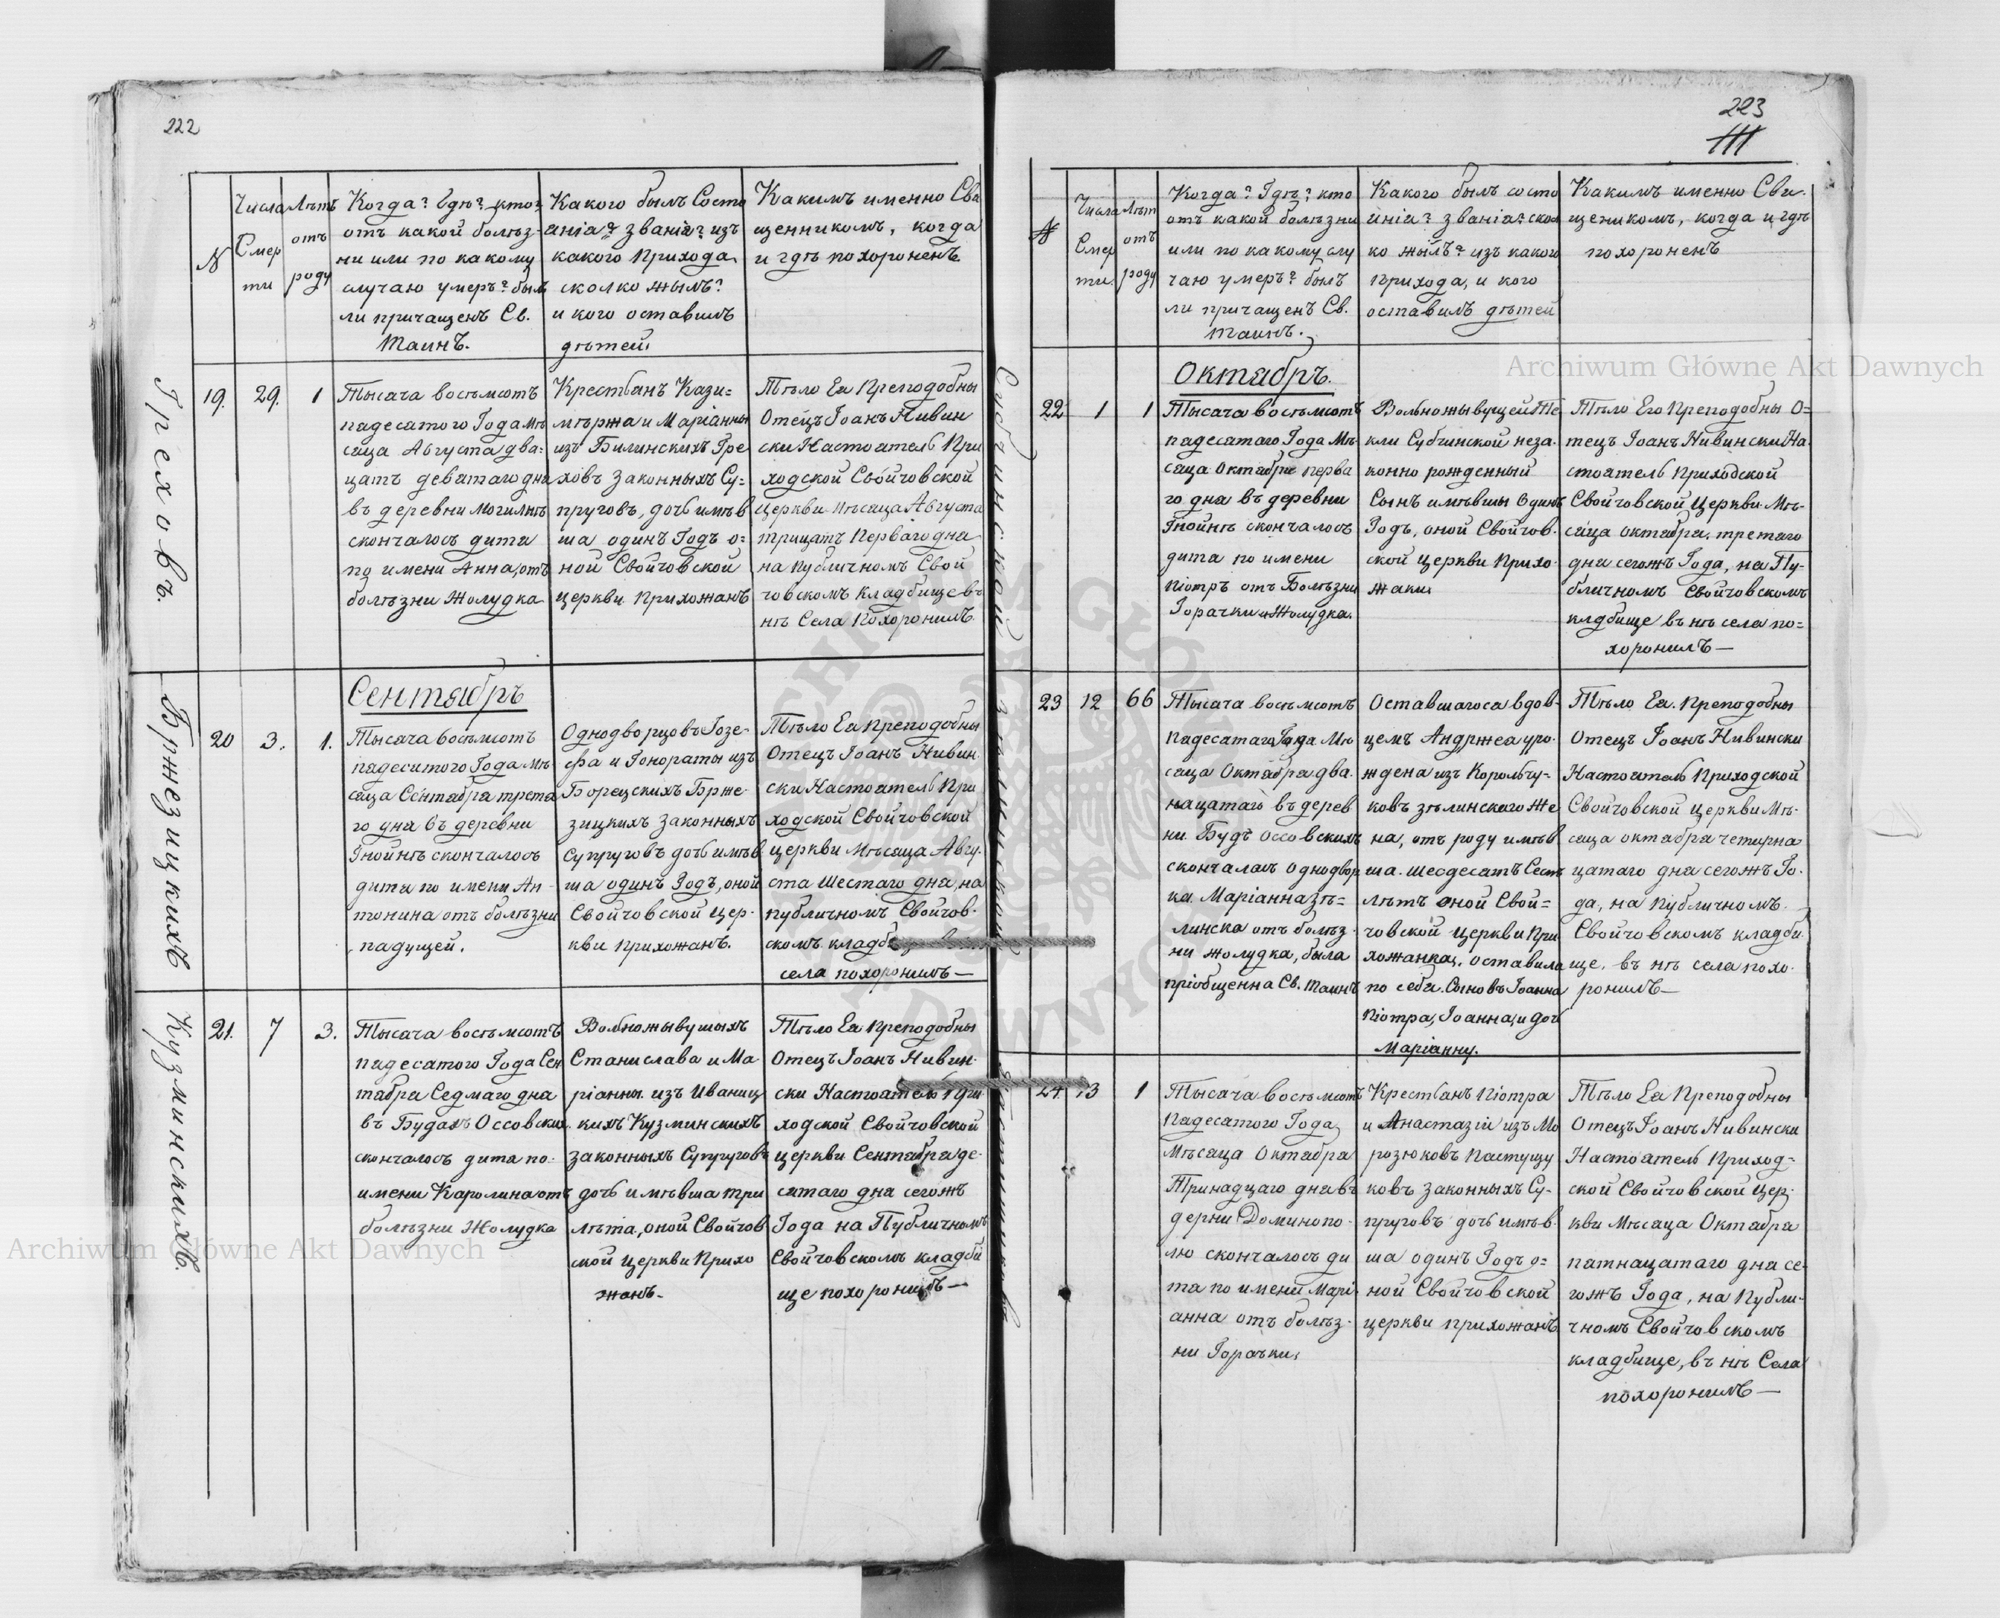 222
N
Числа
Смер
ти
Лѣтъ
отъ
роду
Когда? Гдѣ? кто?
отъ какой болѣз-
ни или по какому
случаю умеръ? былъ
ли причащенъ Св.
Таинъ.
Какого былъ Состо
аніа? званіа? изъ
какого Прихода,
сколко жылъ?
и кого оставилъ
дѣтей.
Какимъ именно Свя
щенникомъ, когда
и гдѣ похороненъ
Греховъ.
19.
29.
1
Тысача восѣмсотъ
падесатого Года Мѣ
саца Августа два-
цатъ деватаго дна
въ деревни Могилнѣ
скончалось дита
по имени Анна, отъ
болѣзни Жолудка
Крестьанъ Кази-
мѣржа и Маріанны
изъ Билинскихъ Гре
ховъ Законныхъ Су-
пруговъ, дочь имѣв
ша одинъ Годъ о-
ной Свойчовской
церкви Прихожанъ
Тѣло Еа Преподобны
Отецъ Іоанъ Нивин
ски Настоатель При
ходской Свойчовской
Церкви Мѣсаца Августа
тридцатъ Перваго дна
на Публичномъ Свой
човскомъ кладбище въ
нѣ Села Похоронилъ
Бржезицкихъ
Сентабръ
20
3.
1.
Тысача восѣмсотъ
падесатого Года Мѣ
саца Сентабра трета
го дна въ деревни
Гнойнѣ скончалось
дита по имени Ан-
тонина отъ болѣзни
падущей.
Однодворцовъ Іозе-
фа и Гонораты изъ
Борецскихъ Брже-
зицкихъ законныхъ
Супруговъ дочь имѣв
ша одинъ Годъ, оной
Свойчовской цер-
кви прихожанъ.
Тѣло Еа Преподобны
Отецъ Іоанъ Нивин-
ски Настоатель При
ходской Свойчовской
церкви Мѣсаца Авгу-
ста Шестаго дна, на
публичномъ Свойчов-
скомъ кладб
села похоронилъ—
Кузминскихъ.
21.
7
3.
Тысача восѣмсотъ
падесатого Года Сен
табра Седмаго дна
въ Будахъ Оссовских
скончалось дита по-
имени Каролина отъ
болѣзни Жолудка
Вольножывущыхъ
Станислава и Ма
ріанны изъ Иваниц
кихъ Кузминскихъ
законныхъ Супруговъ
дочь имѣвша три
лѣта, оной Свойчов
ской церкви Прихо
жанъ.
Тѣло Еа Преподобны
Отецъ Іоанъ Нивин-
ски Настоатель При
ходской Свойчовской
церкви Сентабра де-
сатаго дна сегожъ
Года на Публичномъ
Свойчовскомъ кладби
ще похоронилъ—
223
111
N
Числа
Смер
ти.
Лѣт
отъ
роду
Когда? Гдѣ? кто
отъ какой болѣзни
или по какому слу
чаю умеръ? былъ
ли причащенъ Св.
Таинъ.
Какого былъ состо
аніа? званіа? скол
ко жылъ? изъ какого
Прихода, и кого
оставилъ дѣтей
Какимъ именно Свя-
щеникомъ, когда и гдѣ
похороненъ
Субчинской
Октабръ.
22
1
1
Тысача восѣмсотъ
падесатаго Года Мѣ
саца Октабра перва
го дна въ деревни
Гнойнѣ скончалось
дита по имени
Піотръ отъ Болѣзни
Горачки и Жолудка.
Вольножывущей Те
кли Субчинской неза-
конно рожденный
Сынъ имѣвшы Одинъ
Годъ, оной Свойчов-
ской церкви Прихо-
жанки
Тѣло Его Преподобны О-
тецъ Іоанъ Нивински На-
стоатель Приходской
Свойчовской Церкви. Мѣ-
саца октабра, третаго
дна сегожъ Года, на Пу-
бличномъ Свойчовскомъ
кладбище въ нѣ села по-
хоронилъ—
Зѣлинской
23
12
66
Тысача восѣмсотъ
падесатаго Года Мѣ
саца Октабра два-
нацатаго въ дерев
ни Будѣ Оссовскихъ
скончалась Однодвор
ка Маріанна Зѣ-
линска отъ болѣз-
ни жолудка, была
пріобщенна Св. Таинъ
Оставшагоса вдов-
цемъ Анджеа уро-
ждена изъ Корольчу-
ковъ зѣлинского же
на, отъ роду имѣв
ша. шесдесатъ Сесть
лѣтъ оной Свой-
човской церкви При
хожанка, оставила
по себѣ Сыновъ Іоанна
Піотра, Іоанна, и дочь
Маріанну.
Тѣло Еа. Преподобны
Отецъ Іоанъ Нивински
Настоатель Приходской
Свойчовской церкви Мѣ-
саца октабра четирна
цатаго дна сегожъ Го-
да, на публичномъ
Свойчовскомъ кладби-
ще, въ нѣ села похо-
ронилъ—
24.
13
1
Тысача восѣмсотъ
Падесатого Года,
Мѣсаца Октабра
Тринадцаго дна въ
дерни Доминопо-
лю скончалось ди
та по имени Марі
анна отъ болѣз-
ни Горачки,
Крестьанъ Піотра
и Анастазіи изъ Мо
розюковъ Пастушу
ковъ законныхъ Су-
пруговъ дочь имѣв-
ша одинъ Годъ о-
ной Свойчовской
церкви прихожанъ
Тѣло Еа Преподобны
Отецъ Іоанъ Нивински
Настоатель Приход-
ской Свойчовской Цер-
кви Мѣсаца Октабра
патнацатаго дна се-
гожъ Года, на Публи-
чномъ Свойчовскомъ
кладбище, въ нѣ Села
похоронилъ—
Archiwum Główne Akt Dawnych
Archiwum Główne Akt Dawnych
ARCHIWUM GŁÓWNE AKT DAWNYCH